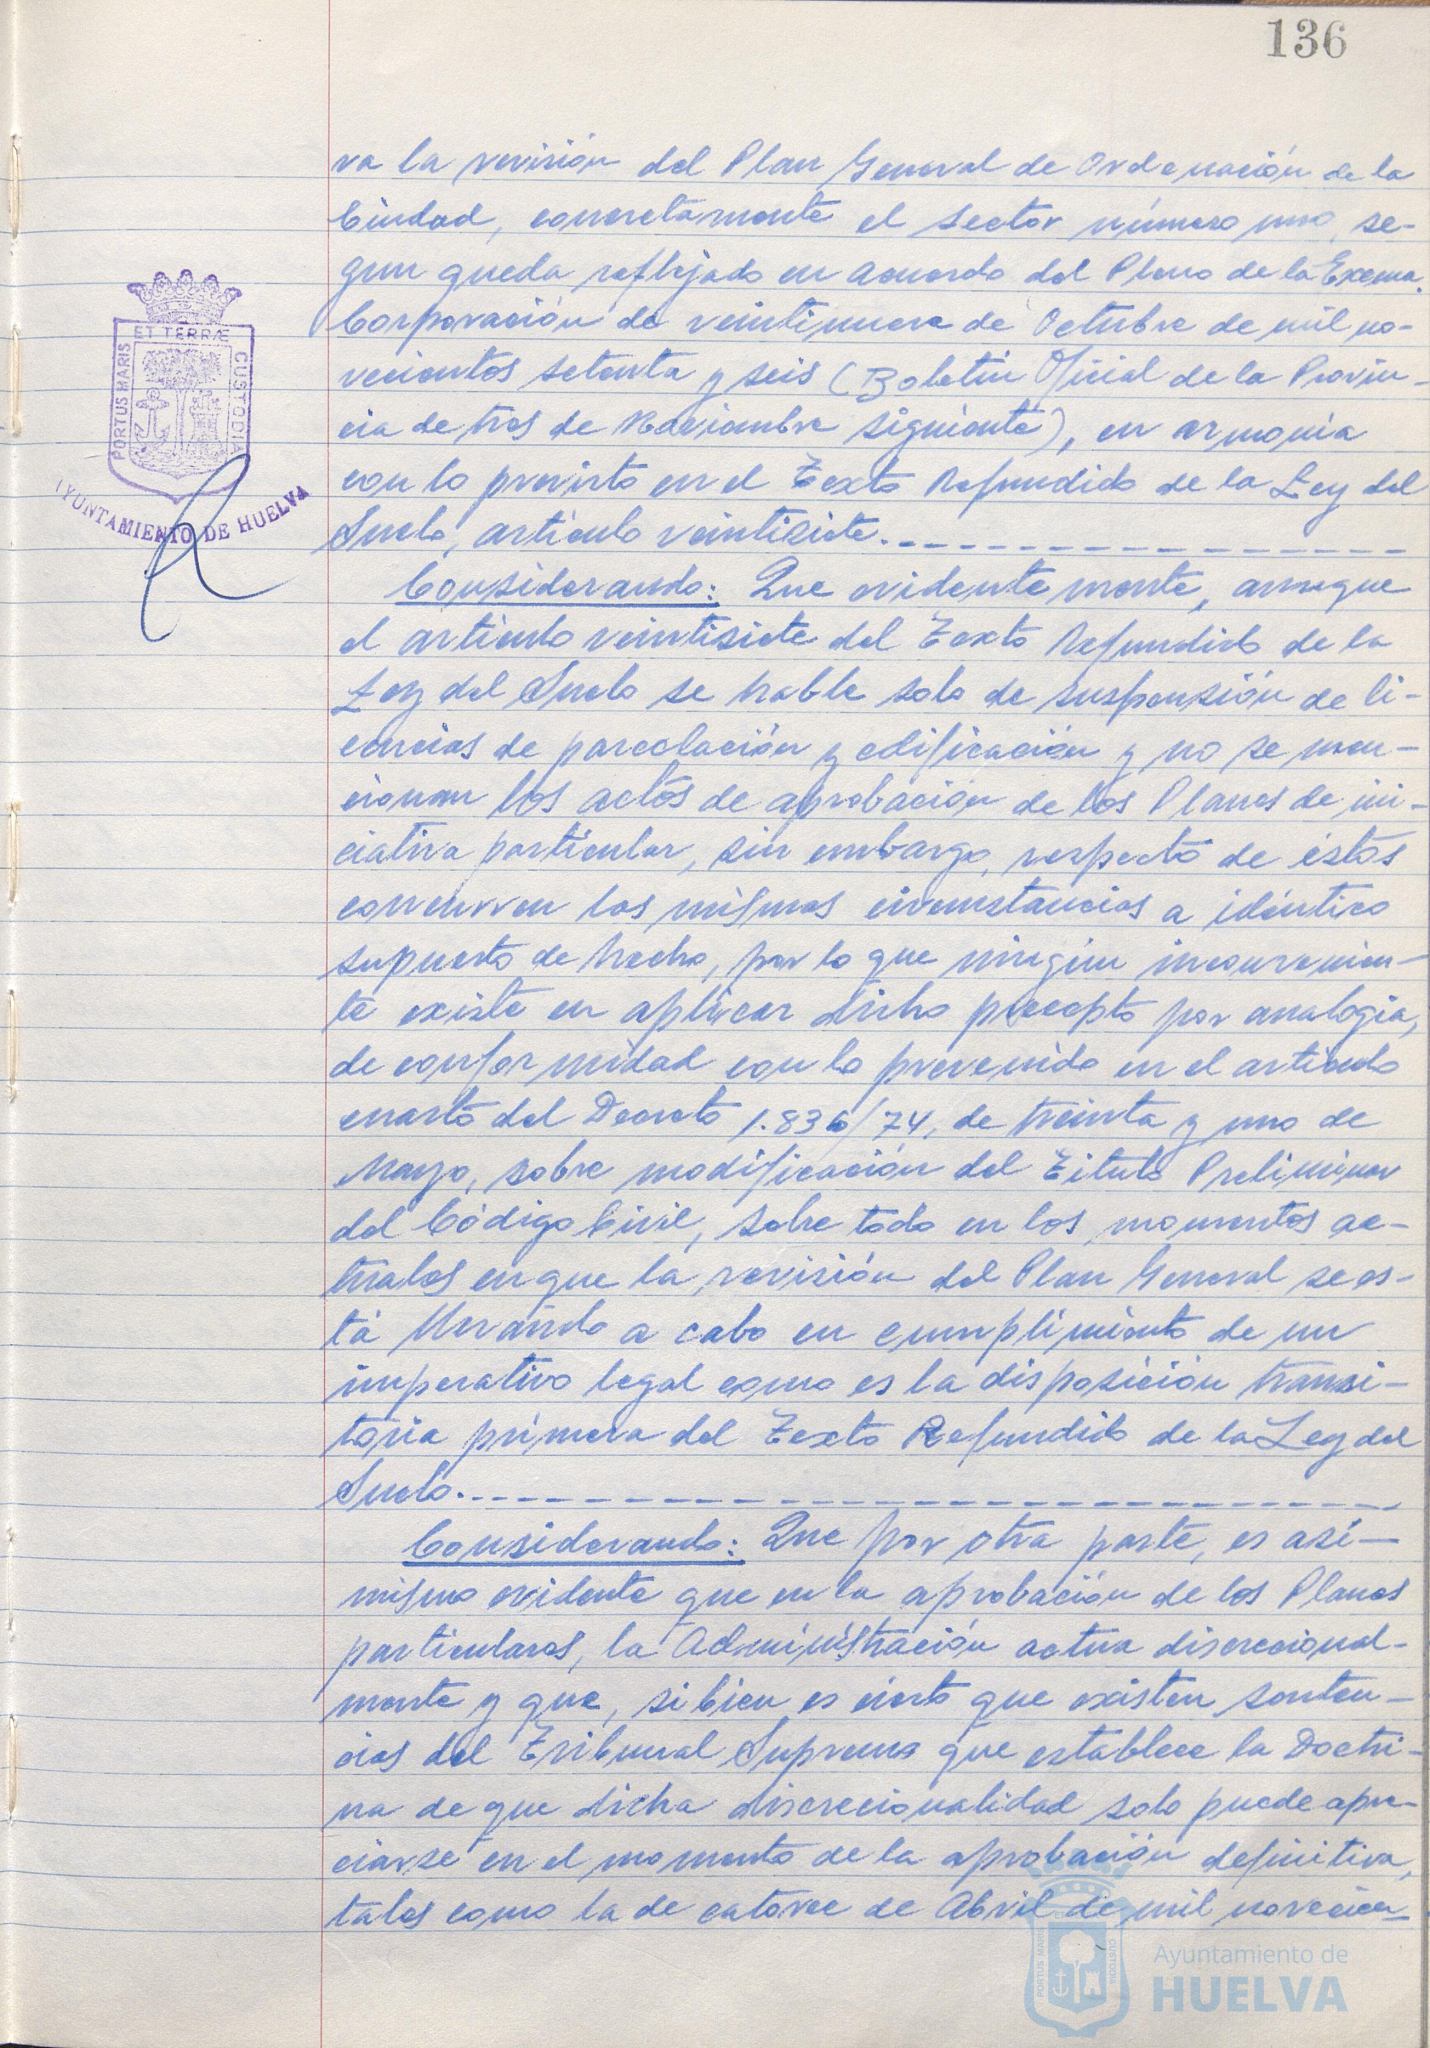 136
va la revisión del Plan General de Ordenación de la
Ciudad, concretamente el sector número uno, se-
gun queda reflejado en acuerdo del Pleno de la Excma.
Corporación de veintinueve de Octubre de mil no-
vecientos setenta y seis (Boletín Oficial de la Provin-
cia de tres de Noviembre siguiente), en armonía
con lo previsto en el Texto Refundido de la Ley del
Suelo, artículo veintisiete.
Considerando: Que evidentemente, aunque
el artículo veintisiete del Texto Refundido de la
Ley del Suelo se hable solo de suspensión de li-
cencias de parcelación y edificación y no se men-
cionan los actos de aprobación de los Planes de ini-
ciativa particular, sin embargo, respecto de éstos
concurren las mismas circunstancias a idéntico
supuesto de hecho, por lo que ningún inconvenien-
te existe en aplicar dicho precepto por analogía,
de conformidad con lo prevenido en el artículo
cuarto del Decreto 1.836/74, de treinta y uno de
Mayo, sobre modificación del Título Preliminar
del Código Civil, sobre todo en los momentos ac-
tuales en que la revisión del Plan General se es-
tá llevando a cabo en cumplimiento de un
imperativo legal como es la disposición transi-
toria primera del Texto Refundido de la Ley del
Suelo.
Considerando: Que por otra parte, es así-
mismo evidente que en la aprobación de los Planes
particulares, la Administración actua discrecional-
mente y que, si bien es cierto que existen senten-
cias del Tribunal Supremo que establece la Doctri-
na de que dicha discrecionalidad solo puede apre-
ciarse en el momento de la aprobación definitiva,
tales como la de catorce de Abril de mil novecien-
PORTUS MARIS
ET TERRÆ
CUSTODIA
AYUNTAMIENTO DE HUELVA
Ayuntamiento de
HUELVA